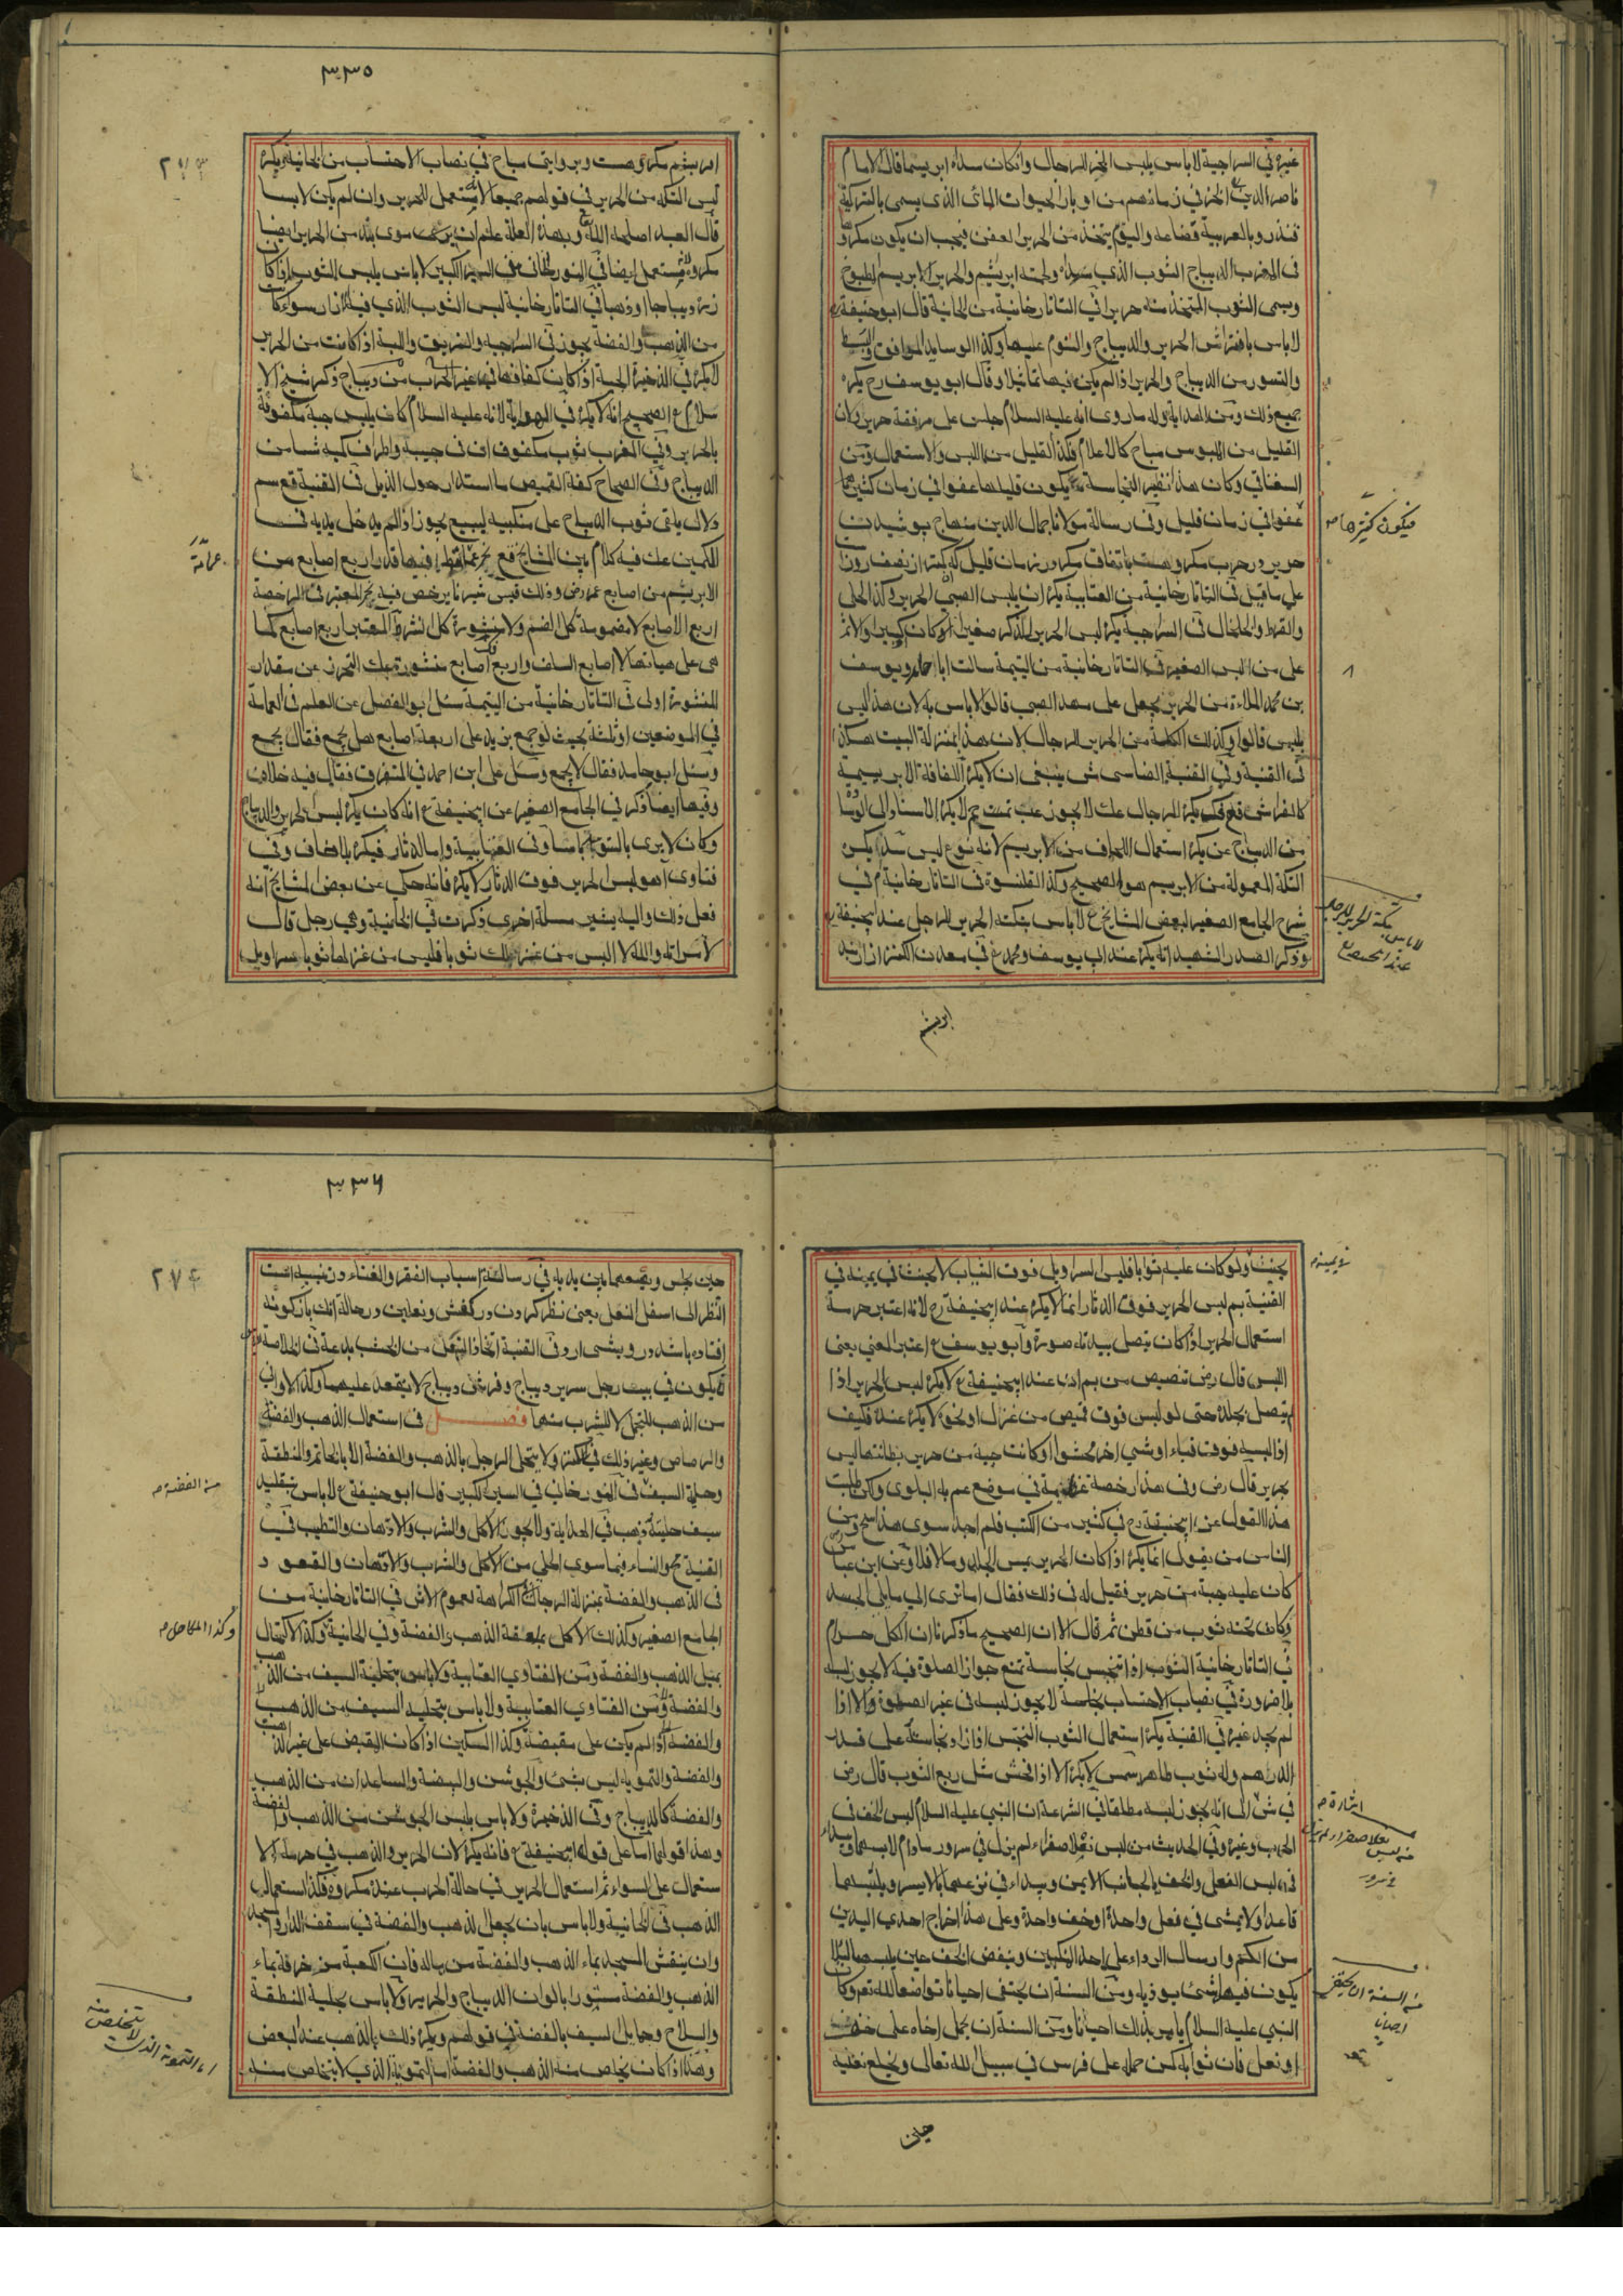 غيره في السراجية لا باس بلبس الخز للرجال وانكان سداه ابريسما قال الامام
ناصر الدين الخز في زمانهم من اوبار الحيوان المائي الذي يسمى بالتركية
قندز وبالعربية قضاعة واليوم يتخذ من الحرير العفن فيجب ان يكون مكروها
في المغرب الديباج الثوب الذي سداه ولحمته ابريشم والحرير الابريسم المطبوخ
ويسمى الثوب المتخذ منه حريرا في التاتارخانية من الخانية قال ابو حنيفة
لا باس بافتراش الحرير والديباج والنوم عليها وكذا الوسايد المرافق والبسط
والستور من الديباج والحرير اذا لم يكن فيها تماثيلا وقال ابو يوسف رح يكره
جميع ذلك ومن الهداية وله ما روى انه عليه السلام جلس على مرفقة حرير ولان
القليل من الملبوس مباح كالاعلام فكذا القليل من اللبس والاستعمال ومن
السغناقي وكان هذا نظير النجاسة يكون قليلها عفوا في زمان كثير
عفوا في زمان قليل وفي رسالة مولانا جمال الدين منهاج پوشيدن
حرير در حرب مكروهست باتفاق مكر در زمان قليل كه كمتر از نصف روز
على ما قيل في التاتارخانية من العتابية يكره ان يلبس الصبي الحرير وكذا الحلي
والقرط والخلخال في السراجية يكره لبس الحرير للذكر صغيرا او كان كبيرا والاثم
على من البس الصغير في التاتارخانية من اليتيمة سالت ابا حامد ويوسف
بن محمد الملاءة من الحرير يجعل على مهد الصبي قالوا لا باس به لان هذا ليس
بلبس قالوا وكذلك الكلة من الحرير للرجال لان هذا بمنزلة البيت هكذا
في القنية وفي القنية ايضا ينبغي ان لا يكره اللفافة الابريسمية
من الديباج عن يكره استعمال اللحاف من الابريسم لانه نوع لبس يكره
التكة المعمولة من الابريسم هو الصحيح وكذا القلنسوة في التاتارخانية م في
شرح الجامع الصغير لبعض المشايخ ع لا باس بتكة الحرير للرجل عند ابي حنيفة
وذكر الصدر الشهيد انه يكره عند ابي يوسف ومحمد ع في معدن الكنز ازاربند
فيكون كثيرها
تكة الحرير للرجل
لا باس
عند ابي حنيفة
ابريشم
٣٣٥
٢٧٣
ابريشم مكروهست وبروايتى مباح في نصاب الاحتساب من الخانية ويكره
لبس التكة من الحرير في قولهم جميعا لانه يستعمل الحرير وان لم يكن لابسا
قال العبد اصلحه الله وبهذه العلة علم ان من الحرير ايضا
مكروه يستعمل ايضا في السير الكبير لا باس بلبس الثوب اذا كان
زره ديباجا او ذهبا في التاتارخانية لبس الثوب الذي فيه ازار سواء كان
من الذهب والفضة يجوز في السراجية اذا كانت من الحرير
لا يكره في الذخيرة الجبة اذا كان كفافها في غير الحرب من ديباج ذكر شيخ الا
سلام ع الصحيح انه لا يكره في الهداية لانه عليه السلام كان يلبس جبة مكفوفة
بالحرير وفي المغرب ثوب مكفوف اي في جيبه واطراف كميه شيا من
الديباج وفي الصحاح كفة القميص ما استدار حول الذيل في القنية قع سم
دلال يلقي ثوب الديباج على منكبيه ليبيع يجوز اذا لم يدخل يديه في
الكمين عك فيه كلام بين المشايخ قدر اربع اصابع من
اربع الاصابع لا مضمومة كل الضم ولا منشورة كل النشر المعتبر اربع اصابع كما
هي على هيئاتها لا اصابع السلف واربع اصابع منشورة عك التحرز عن مقدار
المنشورة اولى في التاتارخانية من اليتيمة سئل ابو الفضل عن العلم في العمامة
في الموضعين او ثلثة بحيث لو جمع يزيد على اربعة اصابع هل يجمع فقال يجمع
وسئل ابو حامد فقال لا يجمع وسئل علي ابن احمد في المتفرق فقال فيه خلاف
وفيها ايضا ذكر في الجامع الصغير عن ابي حنيفة ع انه كان يكره لبس الحرير والديباج
وكان لا يرى بالتوسد باسا وفي العتابية واما الدثار فيكره بلا خلاف وفي
فتاوى آهو لبس الحرير فوق الدثار لا يكره فانه حكي عن بعض المشايخ انه
فعل ذلك واليه يشير مسئلة اخرى ذكرت في الخانية وهي رجل قال
لامراته والله لا البس من غزلك ثوبا فلبس من غزلها ثوبا سراويل
يحنث ولو كان عليه ثوبا فلبس السراويل فوق الثياب لا يحنث في يمينه في
القنية بم لبس الحرير فوق الدثار انما لا يكره عند ابي حنيفة رح لانه اعتبر حرمة
استعمال الحرير اذا كان يتصل ببدنه صورة وابو يوسف ع اعتبر المعنى يعني
اللبس قال رض تنصيص من بم ان عند ابي حنيفة ع لا يكره لبس الحرير اذا
لم يتصل بجلده حتى لو لبس فوق قميص من غزل او نحوه لا يكره عنده فكيف
اذا لبسه فوق قباء او شيء اخر محشوا او كانت جبة من حرير بطانتها ليس
بحرير قال رض وفي هذا رخصة عظيمة في موضع عم به البلوى ولكن طلبت
هذا القول عن ابي حنيفة رح في كثير من الكتب فلم اجد سوى هذا ومن
الناس من يقول انما يكره اذا كان الحرير يمس الجلد وما لا فلا وعن ابن عباس
كان عليه جبة من حرير فقيل له في ذلك فقال اما ترى الى ما يلي الجسد
وكان تحته ثوب من قطن ثم قال الا ان الصحيح ما ذكرنا ان الكل حرام
في التاتارخانية الثوب اذا تنجس نجاسة تمنع جواز الصلوة فيه لا يجوز لبسه
بلا ضرورة في نصاب الاحتساب لا يجوز لبسه في غير الصلوة الا اذا
لم يجد غيره في القنية يكره استعمال الثوب النجس اذا زاد نجاسته على قدر
الدرهم وله ثوب طاهر لا يكره الا اذا فحش مثل ربع الثوب قال رض
في ش الى انه يجوز لبسه مطلقا في الشرعة ان النبي عليه السلام لبس الخف في
الحرب وغيره وفي الحديث من لبس نعلا صفراء لم يزل في سرور ما دام لابسها
في لبس النعل والخف بالجانب الايمن ويبداء في نزعهما بالايسر ويلبسهما
قاعدا ولا يمشي في نعل واحدة او خف واحدة وعلى هذا اخراج احدي اليدين
من الكم وارسال الرداء على احد المنكبين وينفض الخف حين يلبسه لئلا
يكون فيها شئ يوذيه ومن السنة ان يحتفي احيانا تواضعا لله تعم وكان
النبي عليه السلام يامر بذلك احيانا ومن السنة ان يحمل اخاه على خف
او نعل فان ثوابه كمن حمله على فرس في سبيل الله تعالى ويخلع نعليه
في يمينه
اشارة
نعلا صفراء
من لبس
في سرور
من السنة ان يحتفي
احيانا
حين
٣٣٦
٢٧٤
حين يجلس ويضعهما بين يديه في رسالة اسباب الفقر والغناء
النظر الى اسفل النعل يعني نظر كردن در كفش ونعلين در حالة انك باژكونه
افتاده باشد درويشي ارد في القنية اتخاذ النعل من الخشب بدعة في الخلاصة
يكون في بيت رجل سرير ديباج وفرش ديباج لا يقعد عليهما وكذا الاواني
من الذهب للتجمل لا للشرب منها فصل في استعمال الذهب والفضة
والرصاص وغير ذلك في الكنز ولا يتحلى الرجل بالذهب والفضة الا بالخاتم والمنطقة
وحلية السيف في السير الكبير قال ابو حنيفة ع لا باس بتقليد
سيف حليته ذهب في الهداية ولا يجوز الاكل والشرب والادهان والتطيب في
القنية والنساء فيما سوى الحلي من الاكل والشرب والادهان والقعود
في الذهب والفضة بمنزلة الرجال الكراهة لعموم الاثر في التاتارخانية من
الجامع الصغير وكذلك الاكل بملعقة الذهب والفضة وفي الخانية وكذا الاكتحال
بميل الذهب والفضة ومن الفتاوي العتابية ولا باس بتحلية السيف من الذهب
والفضة ومن الفتاوي العتابية ولا باس بتحلية السيف من الذهب
والفضة اذا لم يكن على مقبضه وكذا السكين اذا كان القبض على غير الذهب
والفضة والتمويه ليس بشئ والجوشن والبيضة والساعدان من الذهب
والفضة كالديباج وفي الذخيرة ولا باس بلبس الجوشن من الذهب والفضة
وهذا قولهما اما على قول ابي حنيفة ع فانه يكره لان الحرير والذهب في حرمة الا
ستعمال على السواء ثم استعمال الحرير في حالة الحرب عنده مكروه فكذا استعمال
الذهب في الخانية ولا باس بان يجعل الذهب والفضة في سقف الدار والمسجد
وان ينقش المسجد بماء الذهب والفضة من ماله فان الكعبة مزخرفة بماء
الذهب والفضة مستورة بالوان الديباج والحرير ولا باس بحلية المنطقة
والسلاح وحمايل السيف بالفضة في قولهم ويكره ذلك بالذهب عند البعض
وهذا اذا كان يخلص منه الذهب والفضة اما التمويه الذي لا يتخلص منه
من الفضة
وكذا المكاحل
اما التمويه الذي
لا يتخلص منه